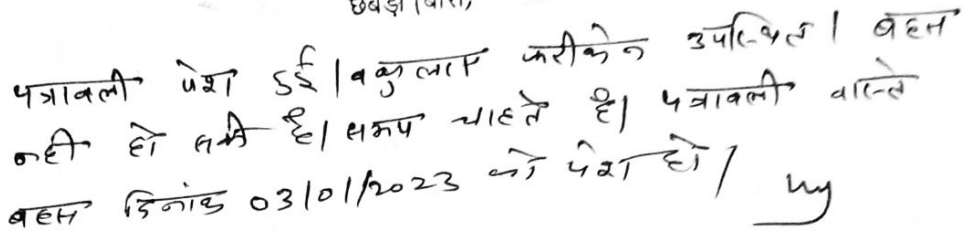 छबड़ा (बारां)
पत्रावली पेश हुई। वकुलाय फरीकेन उपस्थित। बहस
नही हो सकी है। समय चाहते है। पत्रावली वास्ते
बहस दिनांक 03/01/2023 को पेश हो।